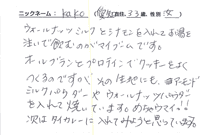 ニックネーム：kako （愛知在住、33歳、性別：女）
ウォールナッツミルクとシナモンを入れてお湯を
注いで飲むのがマイブームです。
オールブランとプロテインでクッキーをよく
つくるのですが、その生地にも、アーモンド
ミルクパウダーやウォールナッツパウダー
を入れて焼いています。めちゃウマイ!!
次はタイカレーに入れてみようと思っています。